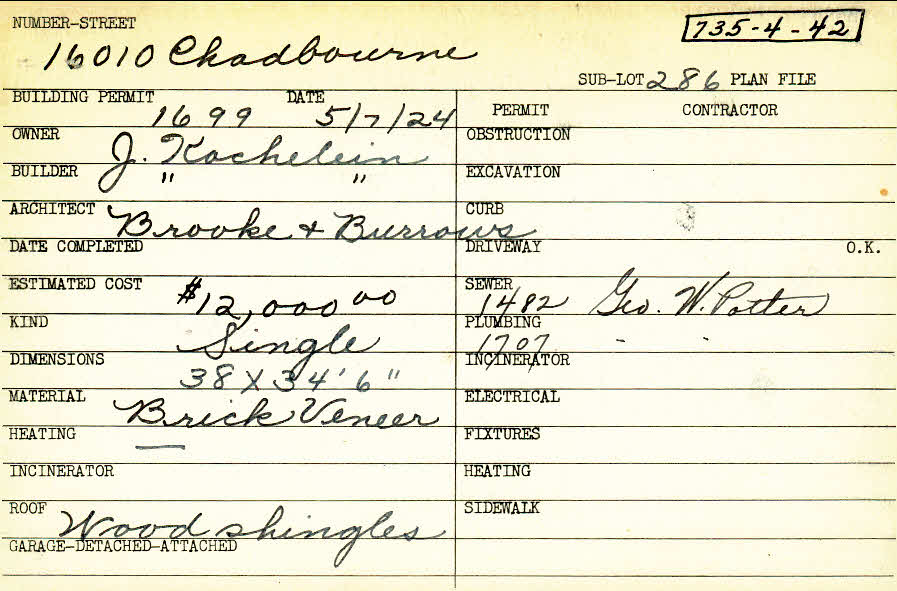 NUMBER-STREET
735-4-42
16010 Chadbourne
SUB-LOT 286 PLAN FILE
BUILDING PERMIT 1699 DATE 5/7/24
PERMIT CONTRACTOR
OWNER J. Kochelein
OBSTRUCTION
BUILDER " "
EXCAVATION
ARCHITECT Brooke + Burrows
CURB
DATE COMPLETED
DRIVEWAY O.K.
ESTIMATED COST $12,000 00
SEWER 1482 Geo. W. Potter
KIND Single
PLUMBING 1707 - -
DIMENSIONS 38 X 34' 6"
INCINERATOR
MATERIAL Brick Veneer
ELECTRICAL
HEATING —
FIXTURES
INCINERATOR
HEATING
ROOF Wood shingles
SIDEWALK
GARAGE-DETACHED-ATTACHED